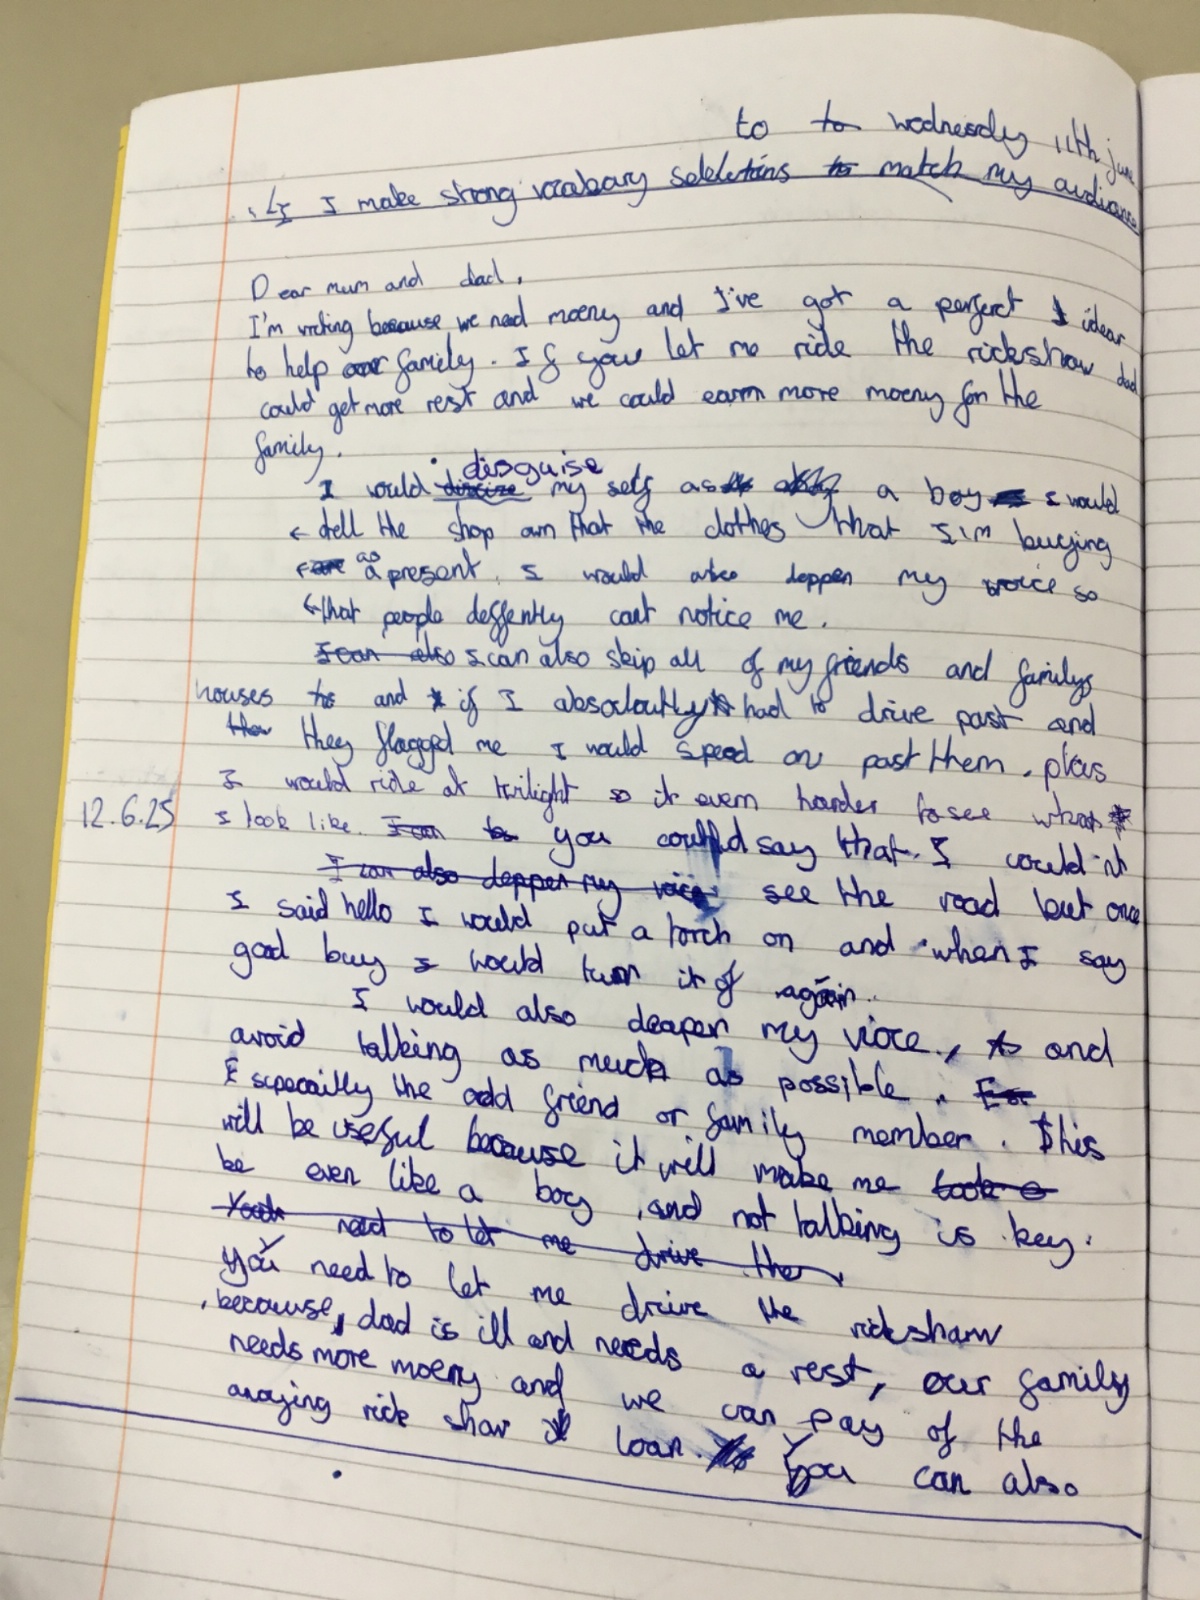 to to wednesday 11th june
LI I make strong vocabary selelutions to match my audiance
Dear mum and dad,
I'm writing because we need moeny and I've got a perfect idear
to help our family. If you let me ride the rickshow dad
could get more rest and we could earn more moeny for the
family.
disguise
I would discize my self as a boy I would
tell the shop own that the clothes that I'm buying
are as a present. I would also deppen my voice so
that people deffently cant notice me.
I can also I can also skip all of my friends and familys
houses to and if I absoloutly had to drive past and
they flagged me I would speed on past them. plus
I would ride at twilight so it even harder to see what
12.6.25
I look like. I can to you could say that I would'nt
I can also deppen my voice see the road but once
I said hello I would put a torch on and when I say
good buy I would turn it of again.
I would also deapen my vioce, to and
avoid talking as much as possible. For
Especailly the odd friend or family member. This
will be useful because it will make me look a
be even like a boy, and not talking is key.
Youk need to let me drive the
you need to let me drive the rickshaw
because, dad is ill and needs a rest, our family
needs more moeny and we can pay of the
anoying rick shaw loan. You can also